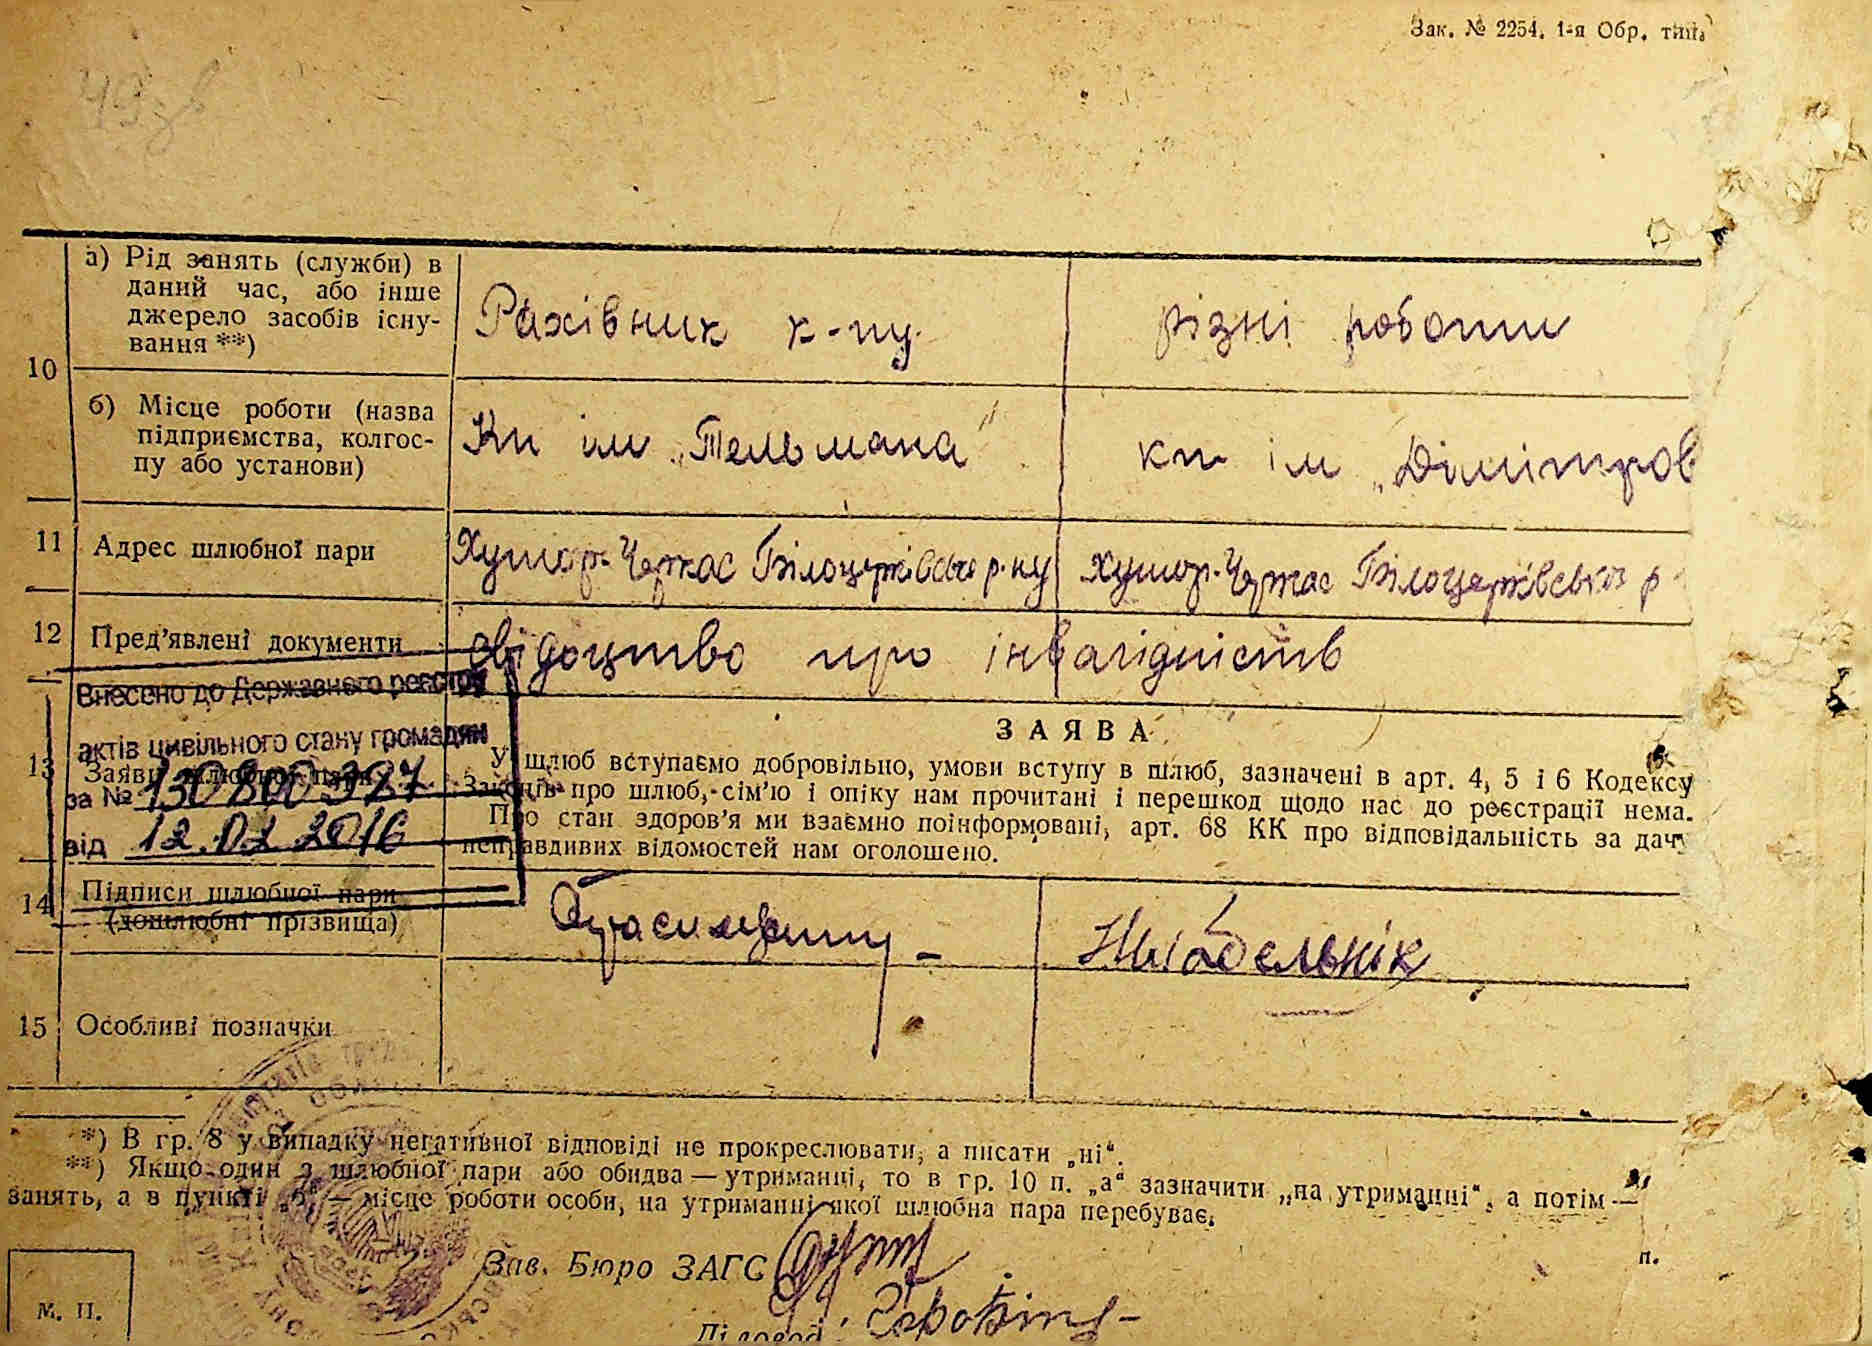 Зак. № 2254. 1-я Обр. тип.
49 зв
10
а) Рід занять (служби) в
даний час, або інше
джерело засобів існу-
вання **)
Рахівник к-пу.
різні роботи
б) Місце роботи (назва
підприємства, колгос-
пу або установи)
Кп ім „Тельмана"
кп ім „Дімітров
11 Адрес шлюбної пари
Хутор-Черкас Білоцерківсько р-ну
хутор-Черкас Білоцерківсько р
12 Пред'явлені документи
свідоцтво про інвалідність
Внесено до Державного реєстру
актів цивільного стану громадян
за № 130800327
від 12.02 2016
13 Заяви шлюбної пари
ЗАЯВА
У шлюб вступаємо добровільно, умови вступу в шлюб, зазначені в арт. 4, 5 і 6 Кодексу
Законів про шлюб, сім'ю і опіку нам прочитані і перешкод щодо нас до реєстрації нема.
Про стан здоров'я ми взаємно поінформовані, арт. 68 КК про відповідальність за дачу
неправдивих відомостей нам оголошено.
14 Підписи шлюбної пари
(дошлюбні прізвища)
15 Особливі позначки
*) В гр. 8 у випадку негативної відповіді не прокреслювати, а писати „ні“.
**) Якщо один з шлюбної пари або обидва — утриманці, то в гр. 10 п. „а“ зазначити „на утриманні“, а потім —
занять, а в пункті „б“ — місце роботи особи, на утриманні якої шлюбна пара перебуває.
п.
Зав. Бюро ЗАГС
М. П.
Діловод